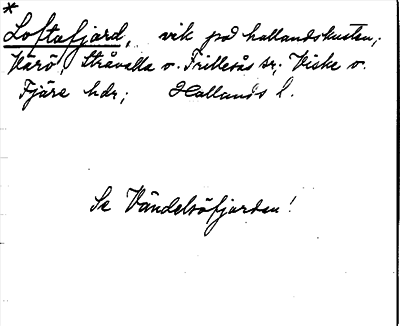 *
Loftafjord, vik på hallandskusten;
Värö, Stråvalla o. Frillesås sr; Viske o.
Fjäre hdr; Hallands l.
Se Vändelsöfjorden!